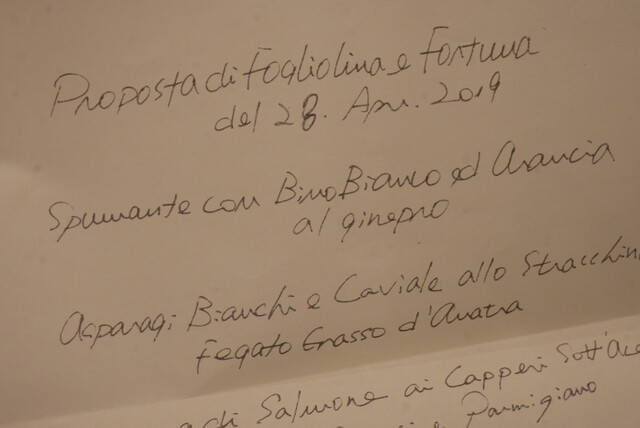 Proposta di Fogliolina e Fortuna
del 28. Apr. 2019
Spumante con Bino Bianco ed Arancia
al ginepro
Asparagi Bianchi e Caviale allo Stracchin
Fegato Grasso d'Anatra
di Salmone ai Capperi Sott'Ace
Parmigiano